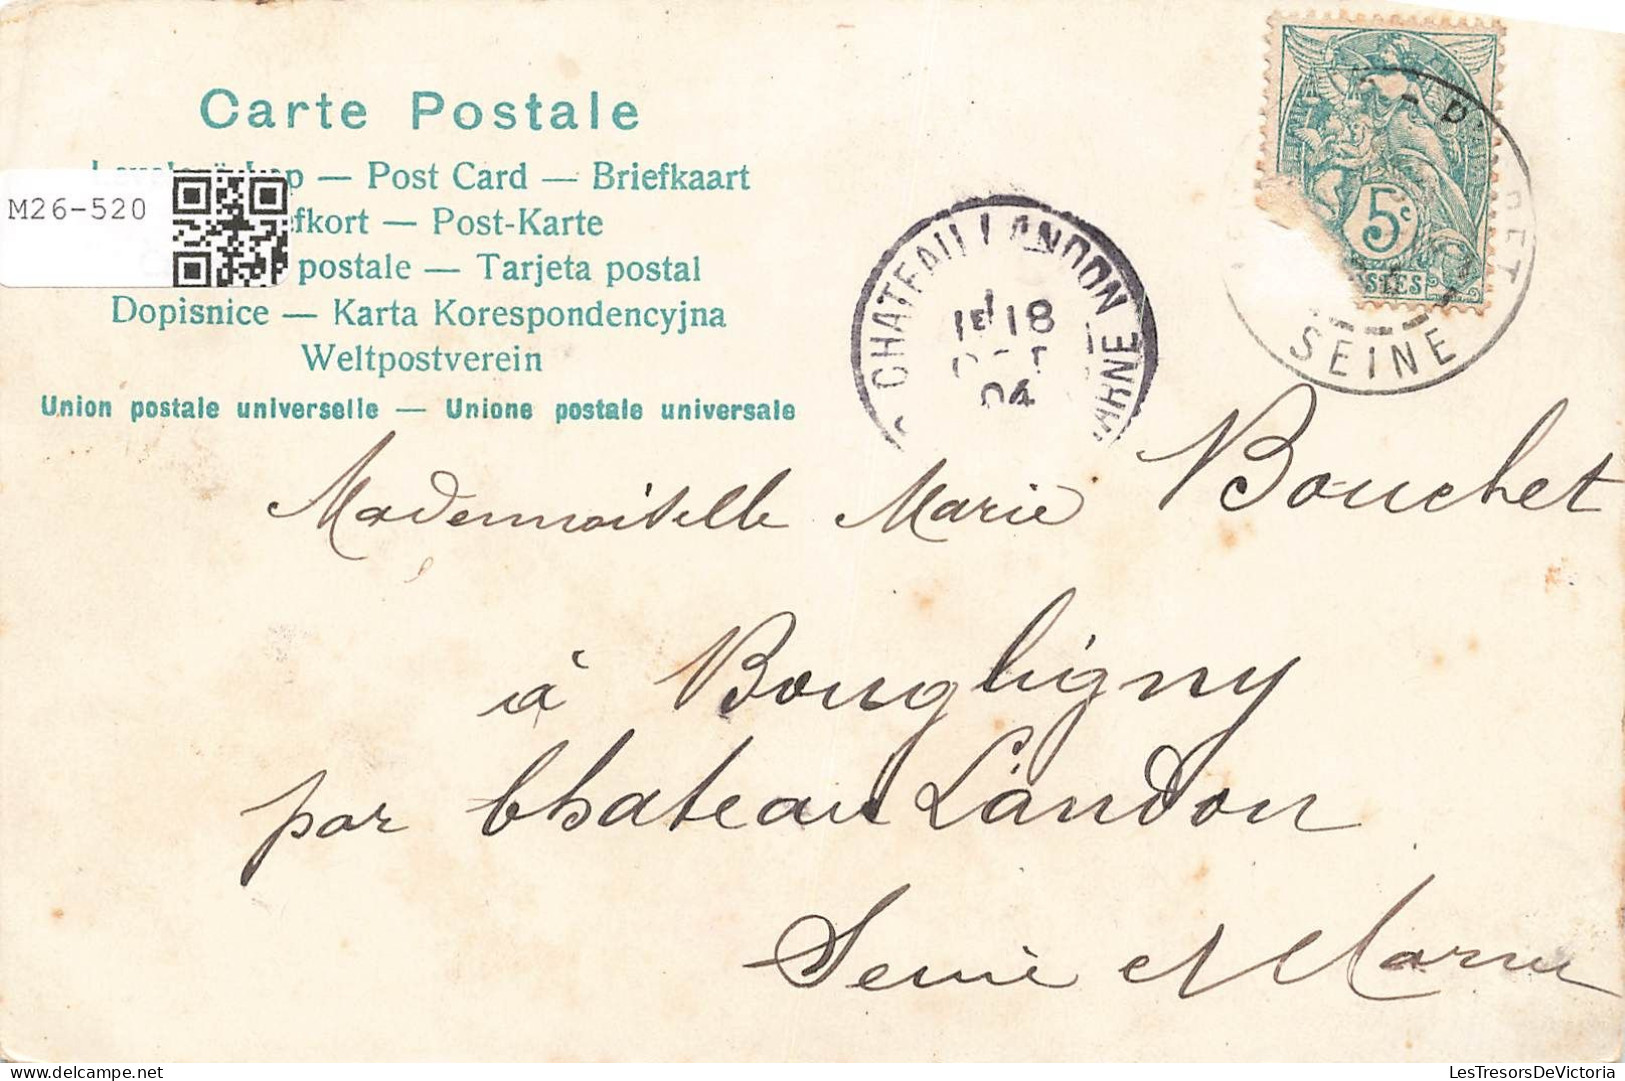 Carte Postale
— Post Card — Briefkaart
M26-520
fkort — Post-Karte
postale — Tarjeta postal
Dopisnice — Karta Korespondencyjna
Weltpostverein
Union postale universelle — Unione postale universale
CHATEAU LANDON
18
04
5c
SEINE
Mademoiselle Marie Bouchet
à Bougligny
par Chateau Landon
Seine et Marne
LesTresorsDeVictoria